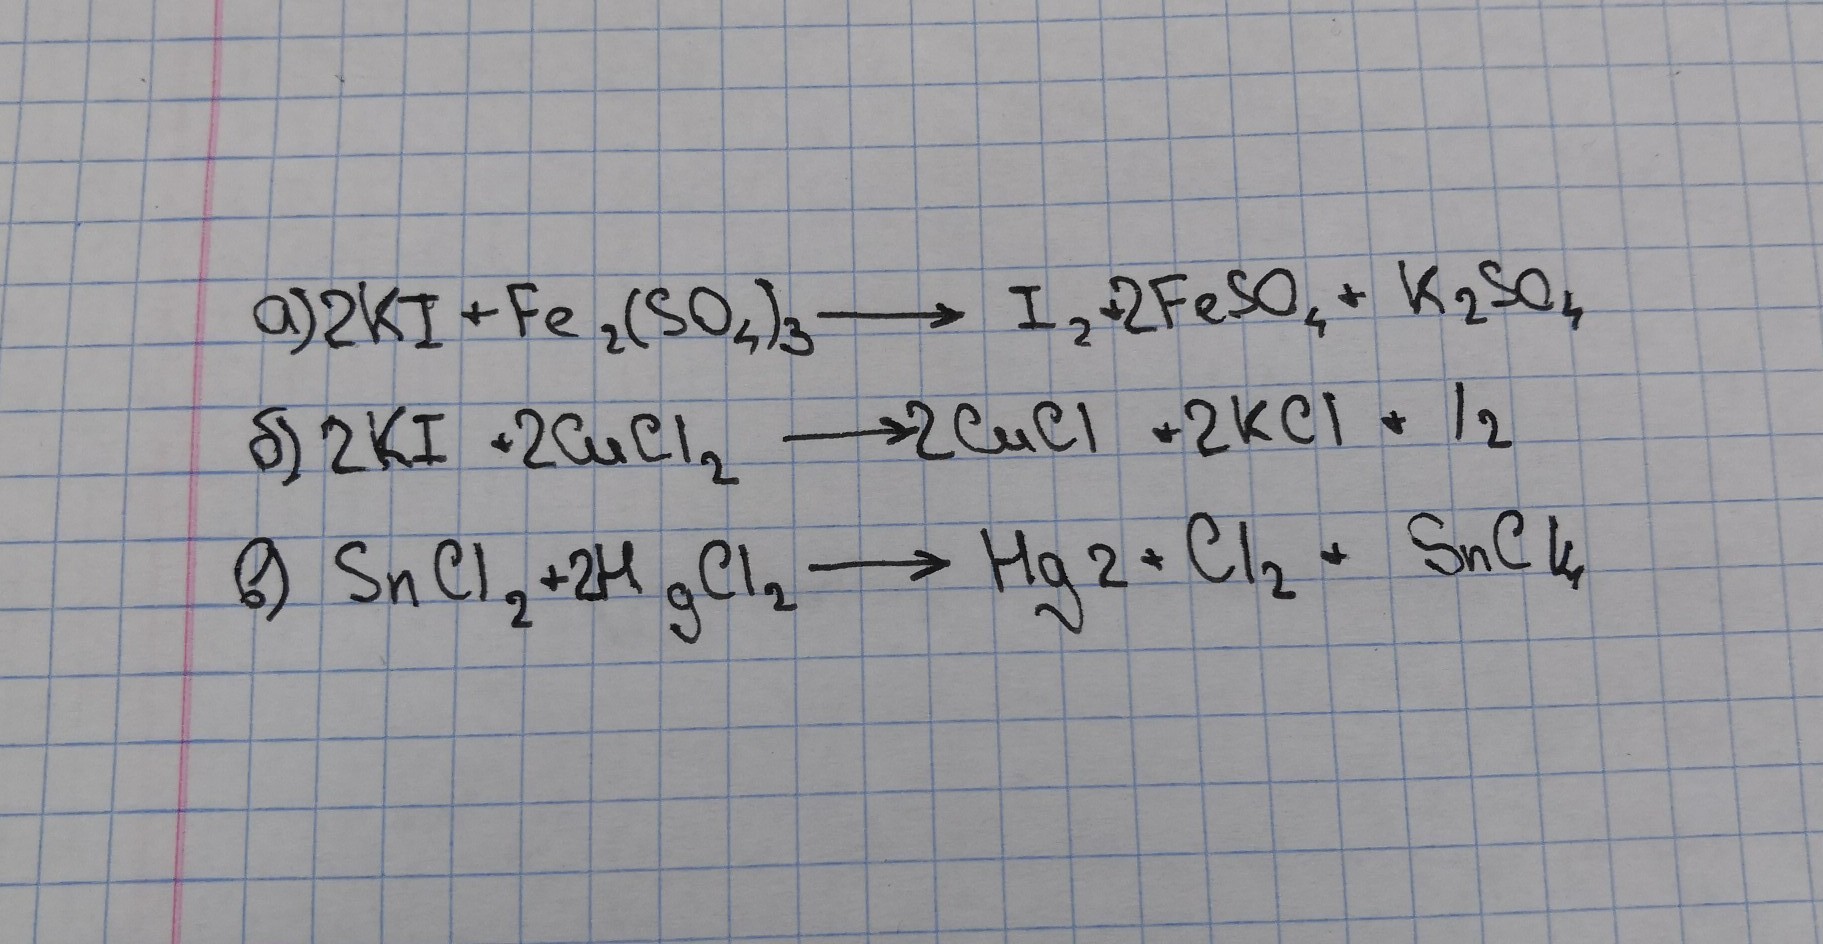 а) 2KI + Fe₂(SO₄)₃ ⟶ I₂ + 2FeSO₄ + K₂SO₄
б) 2KI + 2CuCl₂ ⟶ 2CuCl + 2KCl + I₂
в) SnCl₂ + 2HgCl₂ ⟶ Hg2 + Cl₂ + SnCl₄